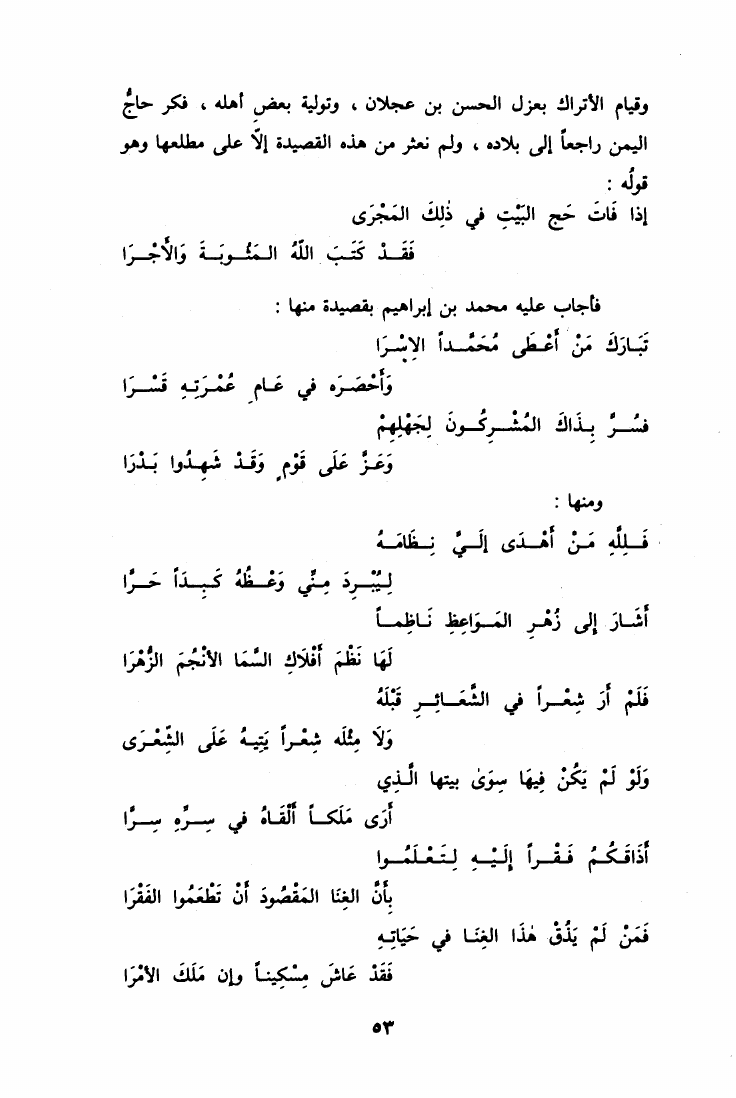 وقيام الأتراك بعزل الحسن بن عجلان ، وتولية بعض أهله ، فكر حاجُّ
اليمن راجعاً إلى بلاده ، ولم نعثر من هذه القصيدة إلّا على مطلعها وهو
قولُه :
إذا فَاتَ حَج البَيْتِ في ذٰلِكَ المَجْرَى
فَقَدْ كَتَبَ اللّهُ المَثُوبَةَ وَالأَجْرَا
فأجاب عليه محمد بن إبراهيم بقصيدة منها :
تَبَارَكَ مَنْ أَعْطَى مُحَمَّداً الإِسْرَا
وَأَحْصَرَه في عَامِ عُمْرَتِهِ قَسْرَا
فسُرَّ بِذَاكَ المُشْرِكُونَ لِجَهْلِهِمْ
وَعَزَّ عَلَى قَوْمٍ وَقَدْ شَهِدُوا بَدْرَا
ومنها :
فَلِلَّهِ مَنْ أَهْدَى إِلَيَّ نِظَامَهُ
لِيُبْرِدَ مِنِّي وَعْظُهُ كَبِداً حَرَّا
أَشَارَ إلى زُهْرِ المَوَاعِظِ نَاظِماً
لَهَا نَظْمَ أَفْلَاكِ السَّمَا الأنْجُمَ الزُّهْرَا
فَلَمْ أَرَ شِعْراً في الشَّعَائِرِ قَبْلَهُ
وَلَا مِثْلَه شعْراً يَتِيهُ عَلَى الشِّعْرَى
وَلَوْ لَمْ يَكُنْ فِيهَا سِوَىٰ بيتها الَّذِي
أَرَى مَلَكاً أَلْقَاهُ في سِرِّهِ سِرَّا
أَذَاقَكُمُ فَقْراً إِلَيْهِ لِتَعْلَمُوا
بِأَنَّ الغِنَا المَقْصُودَ أَنْ تَطْعَمُوا الفَقْرَا
فَمَنْ لَمْ يَذُقْ هٰذَا الغِنَا في حَيَاتِهِ
فَقَدْ عَاشَ مِسْكِيناً وإن مَلَكَ الأمْرَا
٥٣